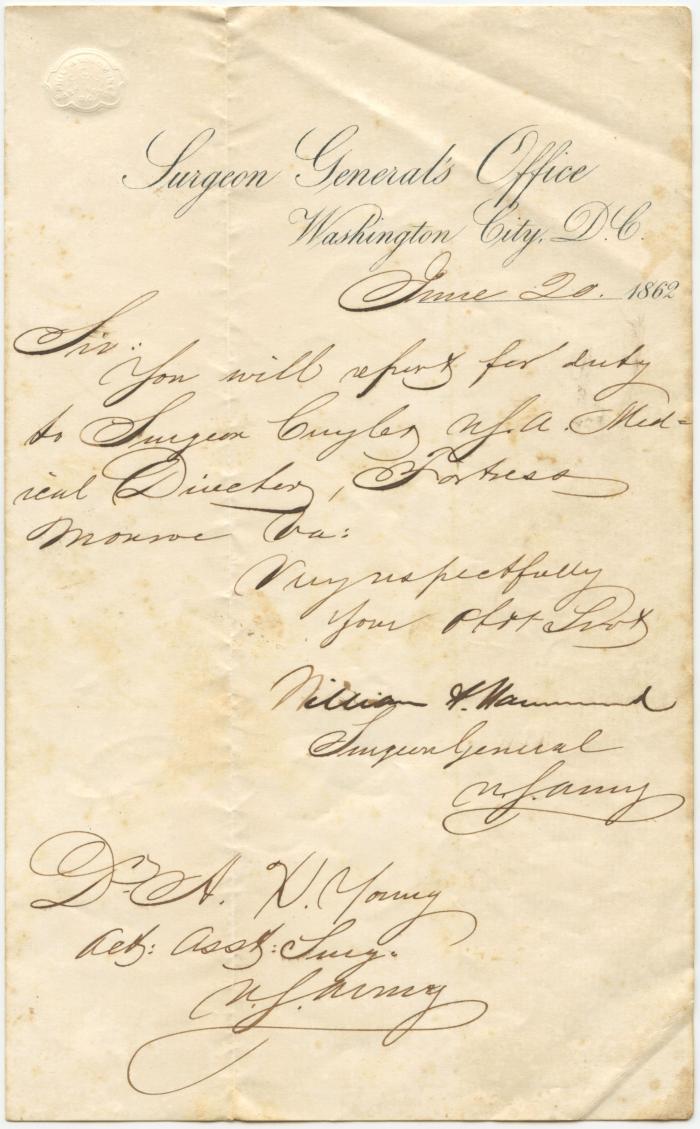 Surgeon General's Office
Washington City, D.C.
June 20. 1862
Sir:
You will report for duty
to Surgeon Cuyler U.S.A. Med=
ical Director, Fortress
Monroe Va:
Very respectfully
Your Obdt Srvt
William A. Hammond
Surgeon General
U.S. Army
Dr. A. K. Young
Act: Asst: Surg.
U.S. Army